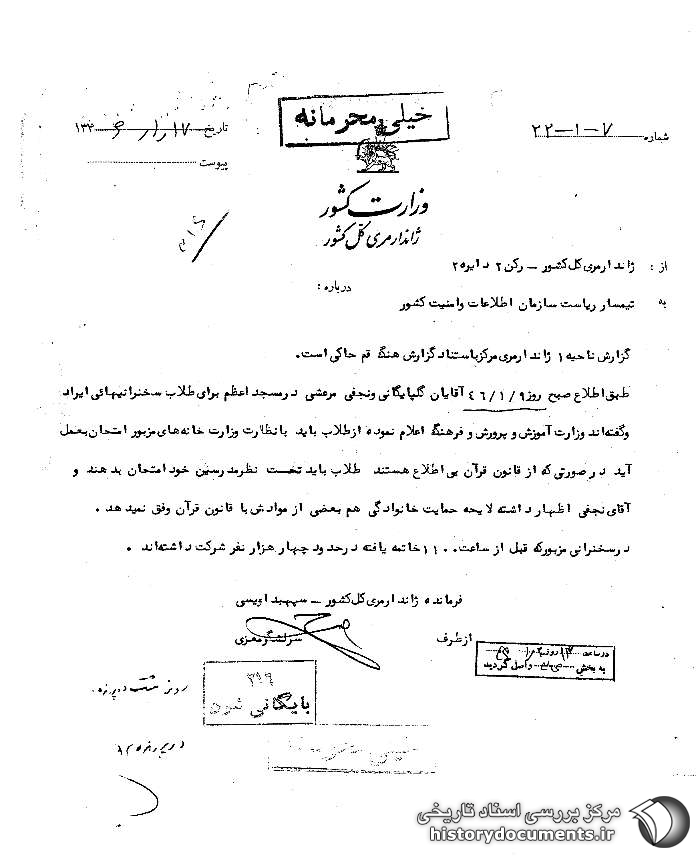 خیلی محرمانه
شماره ۷-۱-۲۲
تاریخ ۱۷
پیوست
وزارت کشور
ژاندارمری کل کشور
از : ژاندارمری کل کشور - رکن ۲ دایره ۲
به تیمسار ریاست سازمان اطلاعات وامنیت کشور
درباره :
گزارش ناحیه ۱ ژاندارمری مرکز باستناد گزارش هنگ قم حاکی است .
طبق اطلاع صبح روز ۴۶/۱/۹ آقایان گلپایگانی ونجفی مرعشی در مسجد اعظم برای طلاب سخنرانیهائی ایراد
وگفته‌اند وزارت آموزش و پرورش و فرهنگ اعلام نموده از طلاب باید با نظارت وزارت خانه‌های مزبور امتحان بعمل
آید در صورتی که از قانون قرآن بی اطلاع هستند طلاب باید نخست نظر مدرسین خود امتحان بدهند و
آقای نجفی اظهار داشته لایحه حمایت خانوادگی هم بعضی از موادش با قانون قرآن وفق نمیدهد .
در سخنرانی مزبور که قبل از ساعت ۱۱۰۰ خاتمه یافته در حدود چهار هزار نفر شرکت داشته‌اند .
فرمانده ژاندارمری کل کشور - سپهبد اویسی
از طرف سرلشگر معزی
در ساعت روز
به بخش واصل گردید
۳۹۶
بایگانی شود
مرکز بررسی اسناد تاریخی
historydocuments.ir